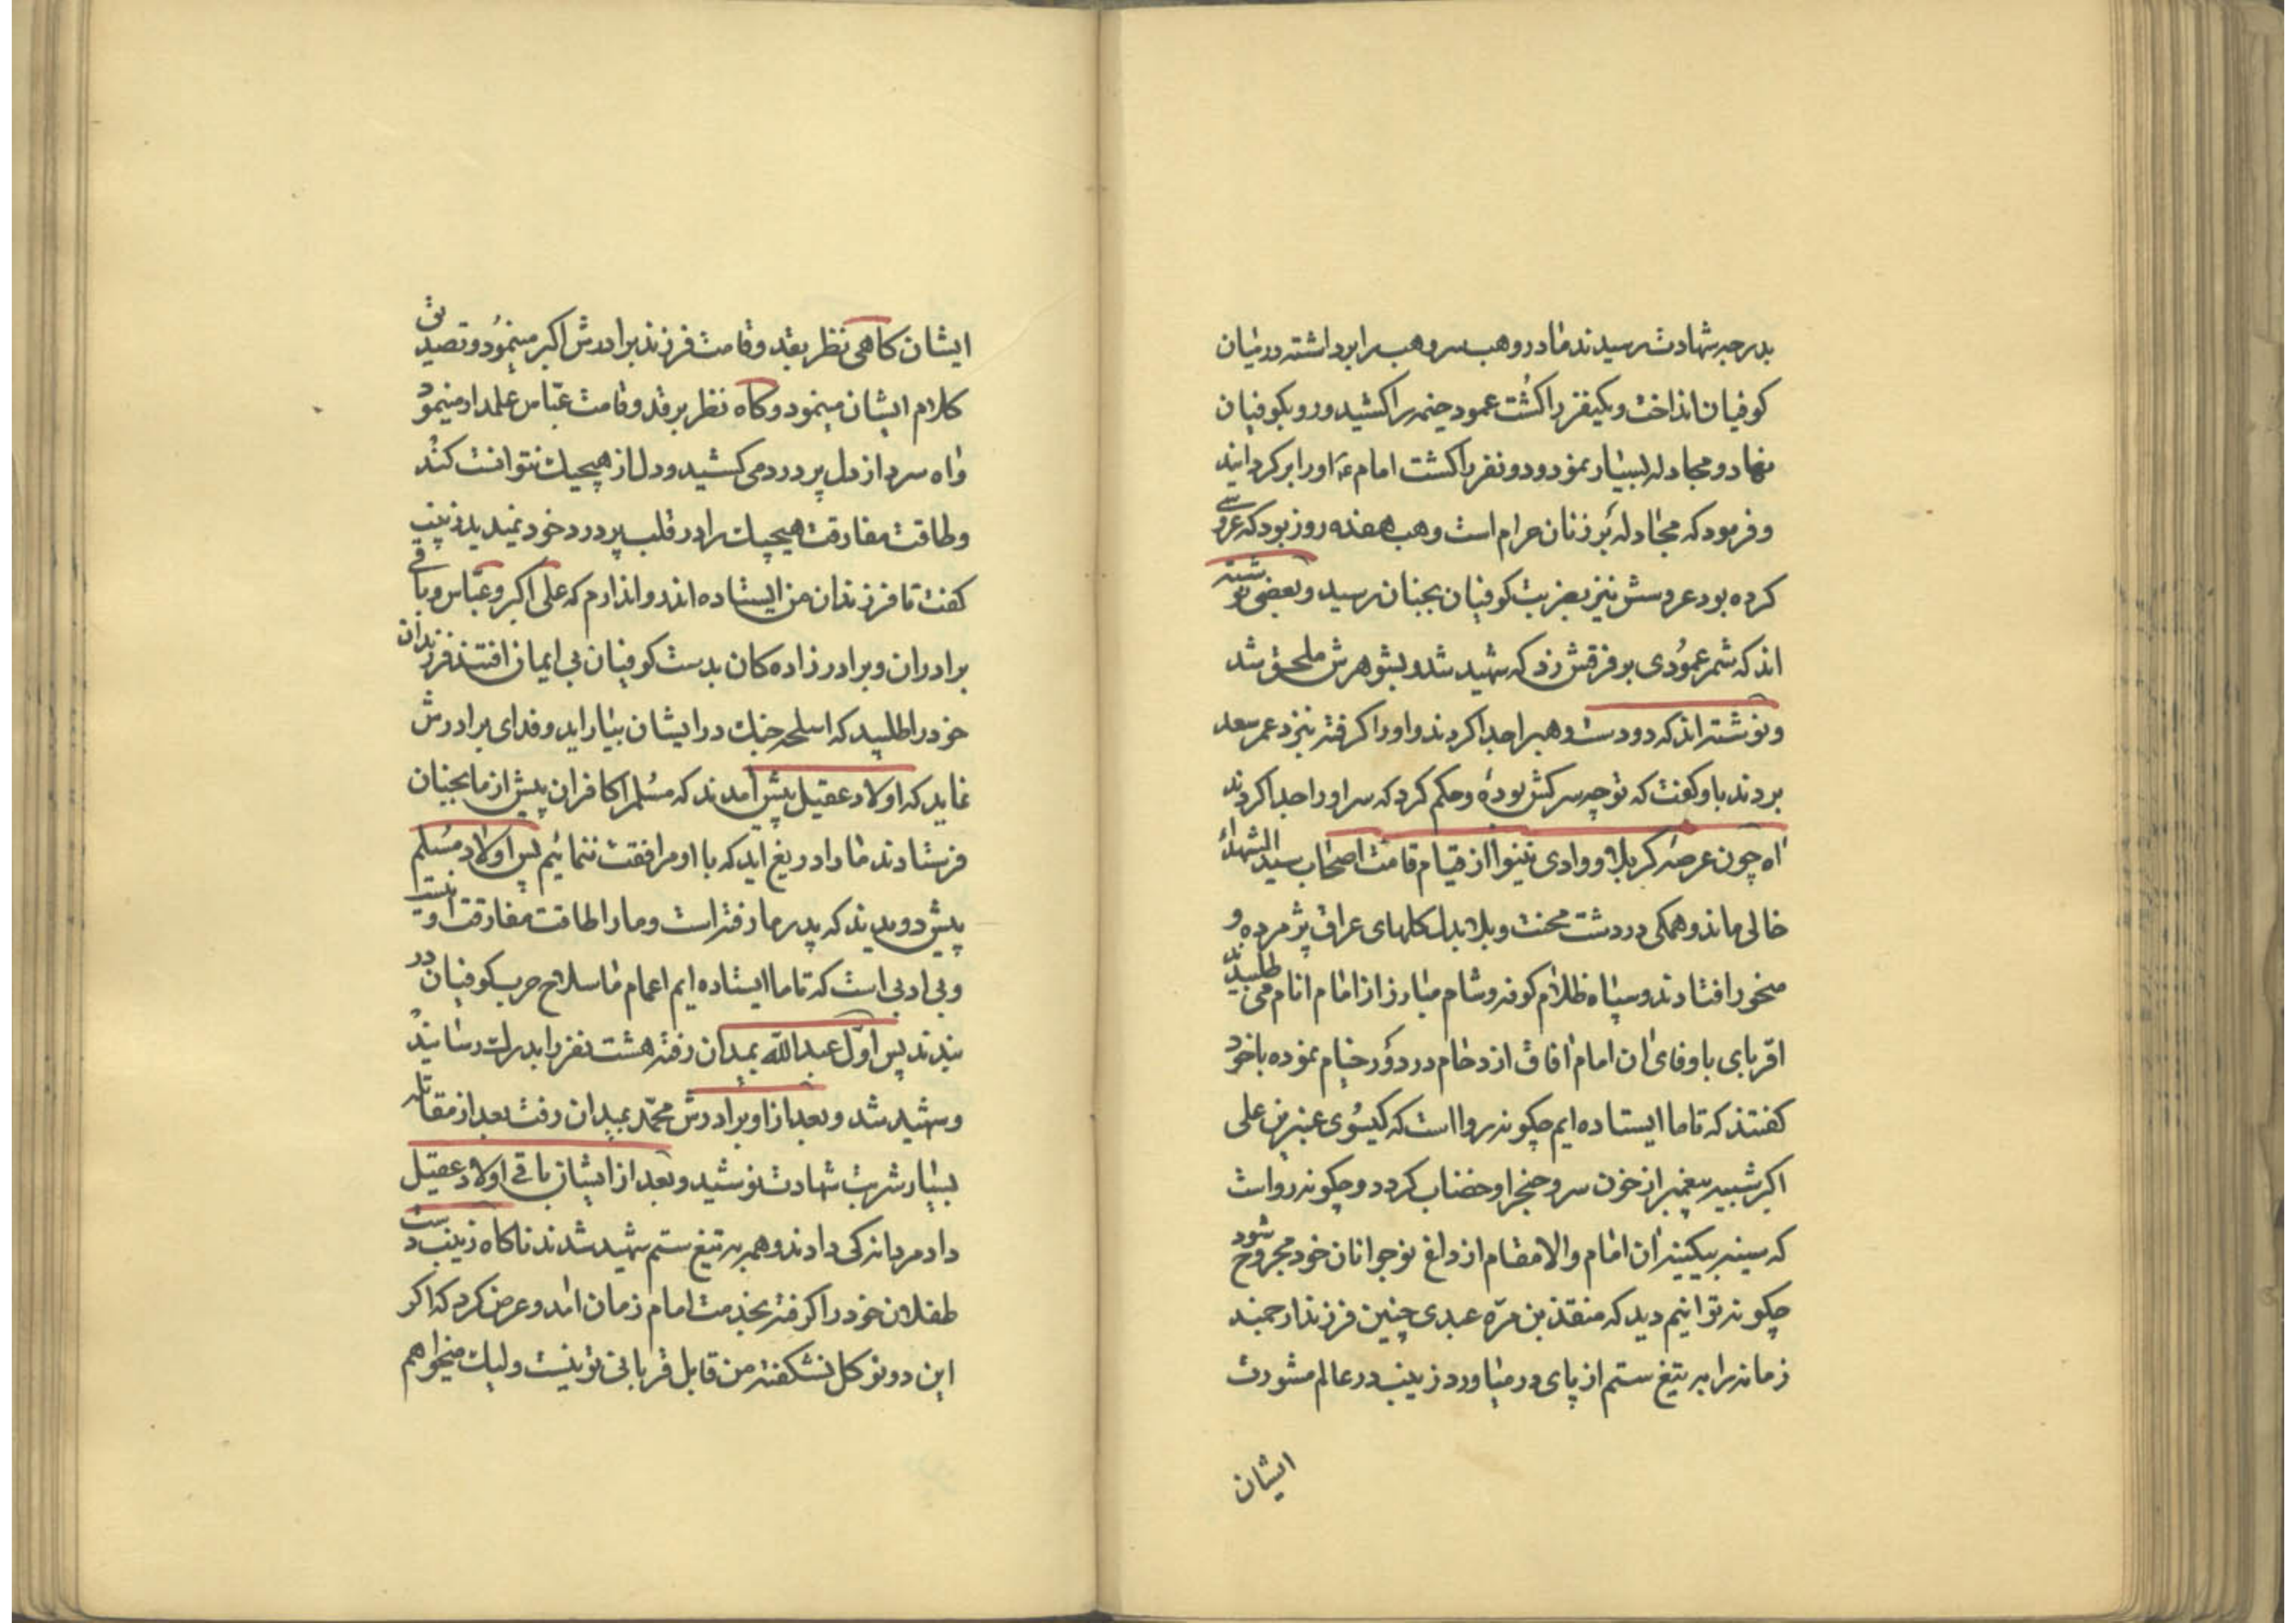 بدرجه شهادت رسیدند مادر وهب سر وهب را برداشته در میان
کوفیان انداخت و یکنفر را کُشت عمود خیمه را کشید و رو بکوفیان
نهاد و مجادله بسیار نمود و دو نفر را کشت امام ع او را برگردانید
و فرمود که مجادله بر زنان حرام است وهب هفده روز بود که عروسی
کرده بود عروسش نیز بضربت کوفیان بجنان رسید و بعضی نوشته
اند که شمر عمودی بر فرقش زد که شهید شد و بشوهرش ملحق شد
و نوشته اند که دو دست وهب را جدا کردند و او را گرفته نزد عمر سعد
بردند باو گفت که تو چه سرکش بودهٔ و حکم کرد که سر او را جدا کردند
اه چون عرصه کربلا و وادی نینوا از قیام قامت اصحاب سید الشهداء
خالی ماند و همگی در دشت محنت و بلا بدل گلهای عراق پژمرده و
منخور افتادند و سپاه ظلام کوفه و شام مبارز از امام انام می طلبیدند
اقربای باوفای ان امام افاق ازدحام در دور خیام نموده باخود
گفتند که تا ما ایستاده ایم چگونه روا است که گیسوی عنبرین علی
اکبر شبیه پیغمبر از خون سر و حنجر او خضاب گردد و چگونه رواست
که سینه بیکینه ان امام والامقام از داغ نوجوانان خود مجروح شود
چگونه توانیم دید که منقذ بن مرّه عبدی چنین فرزند ارجمند
زمانه را به تیغ ستم از پای در میاورد زینب در عالم مشورت
ایشان
ایشان گاهی نظر بقد و قامت فرزند برادرش اکبر مینمود و تصدیق
کلام ایشان مینمود و گاه نظر بر قد و قامت عبّاس علمدار مینمود
و اه سرد از دل پر درد می کشید و دل از هیچیک نتوانست کند
و طاقت مفارقت هیچیک را در قلب پر درد خود نمیدید زینب
گفت تا فرزندان من ایستاده اند واندارم که علی اکبر و عبّاس و باقی
برادران و برادر زاده گان بدست کوفیان بی ایمان افتند فرزندان
خود را طلبید که اسلحه جنک در ایشان بیاراید و فدای برادرش
نماید که اولاد عقیل پیش آمدند که مُسلم را کافران پیش از ما بجنان
فرستادند ما را دریغ اید که با او مرافقت ننمائیم پس اولاد مُسلم
پیش دویدند که پدر ما رفته است و ما را طاقت مفارقت او نیست
و بی ادبی است که تا ما ایستاده ایم اعمام ما سلاح حرب کوفیان در
بندند پس اوّل عبدالله بمیدان رفته هشت نفر را بدرک رسانید
و شهید شد و بعد از او برادرش محمّد بمیدان رفت بعد از مقاتله
بسیار شربت شهادت نوشید و بعد از ایشان باقی اولاد عقیل
داد مردانه کی دادند و همه به تیغ ستم شهید شدند ناگاه زینب دست
طفلان خود را گرفته بخدمت امام زمان امد و عرض کرد که اگر
این دو نوگل نشکفته من قابل قربانی تو نیست ولیک میخواهم